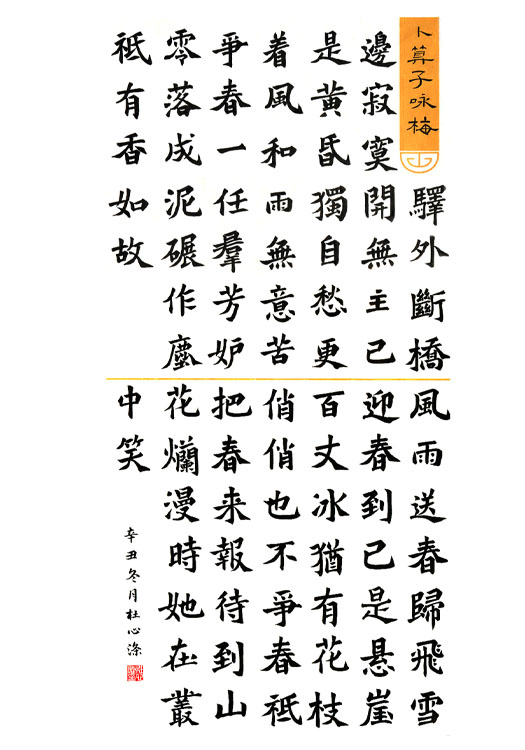 卜算子咏梅
驛外斷橋
邊寂寞開無主已
是黄昏獨自愁更
着風和雨無意苦
爭春一任羣芳妒
零落成泥碾作塵
祗有香如故
風雨送春歸飛雪
迎春到已是悬崖
百丈冰猶有花枝
俏俏也不爭春祗
把春来報待到山
花爛漫時她在叢
中笑
辛丑冬月杜心涤